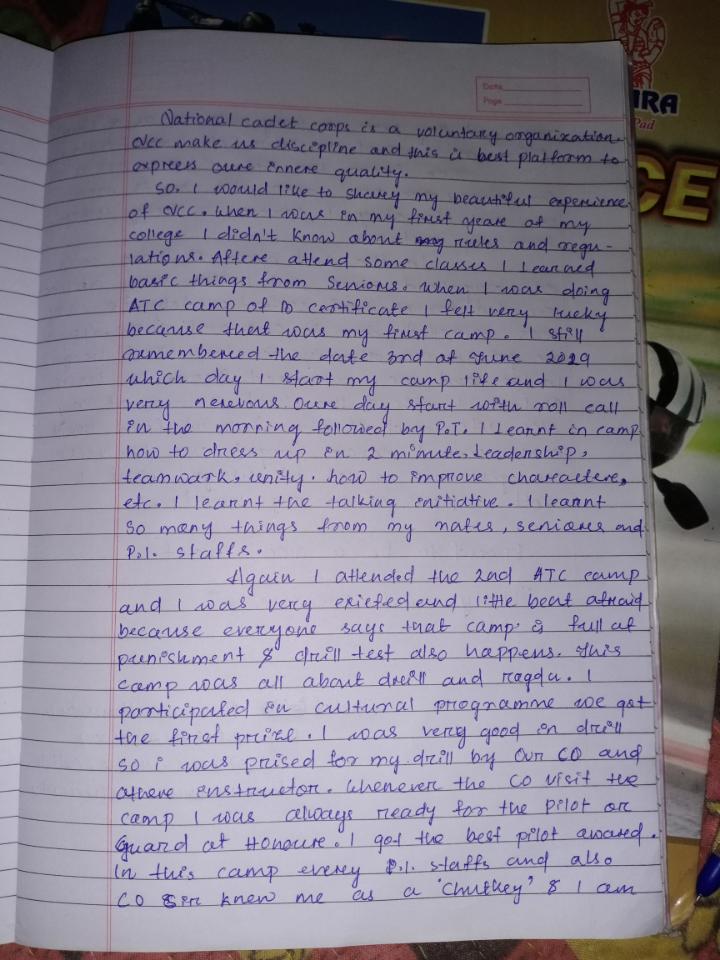 Date
Page
IRA
Pad
CE
National cadet corps is a voluntary organization.
NCC make us discipline and this is best platform to
express oure innere quality.
SO. I would like to sharey my beautiful experience
of NCC. When I was in my first yeare of my
college I didn't know about rules and regu-
lations. Aftere attend some classes I learned
basic things from Seniors. When I was doing
ATC camp of B certificate I felt very lucky
because that was my first camp. I still
remembered the date 3rd of June 2029
which day I start my camp life and I was
very nerevous. Oure day start with roll call
in the morning followed by P.T. I learnt in camp
how to dress up in 2 minute. Leadership,
teamwark, unity. how to improve charactere,
etc. I learnt the talking initiative. I learnt
so many things from my mates, seniores and
P.I. staffs.
Again I attended the 2nd ATC camp
and I was very and little beat afraid
because everyone says that camp is full of
punishment & drill test also happens. This
camp was all about drill and ragda. I
participated in cultural programme we got
the first prize. I was very good in drill
so i was prised for my drill by Our CO and
othere instructor. Whenever the CO visit the
camp I was always ready for the pilot or
Guard at Honoure. I got the best pilot award.
In this camp every P.I. staffs and also
CO Sir knew me as a 'Chutkey' & I am